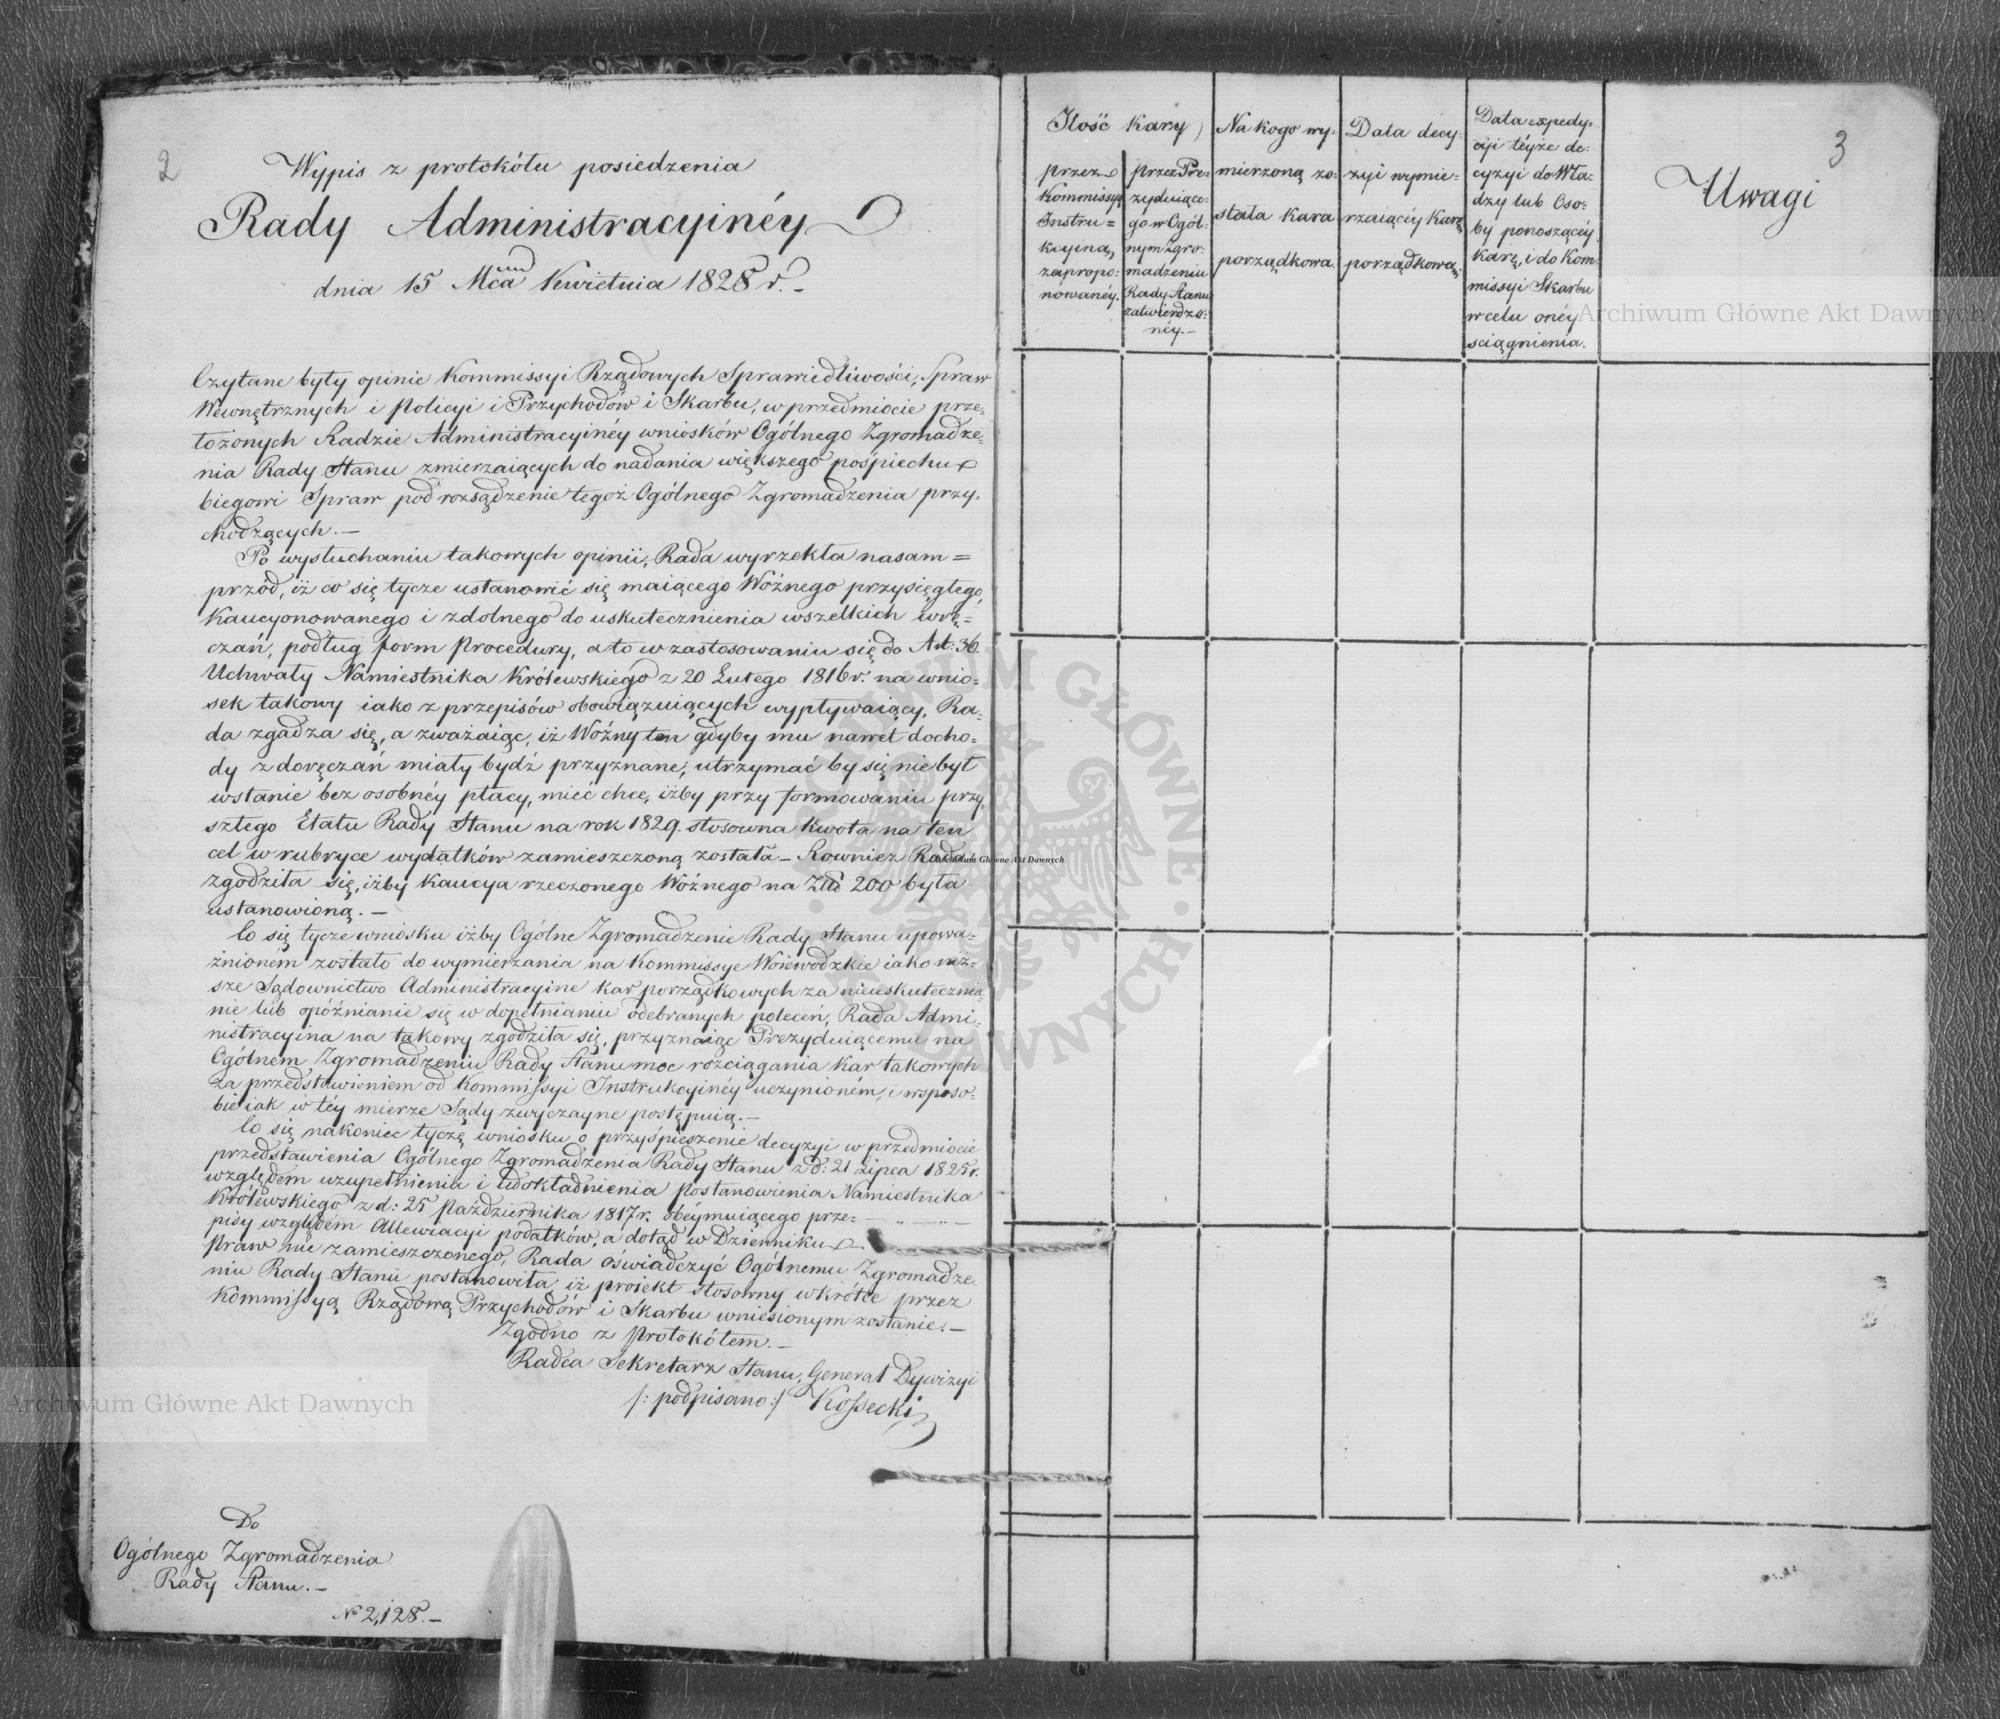 2
Wypis z protokółu posiedzenia
Rady Administracyinéy
dnia 15 Mca Kwietnia 1828 r. –
Czytane były opinie Kommissyi Rządowych Sprawiedliwości, Spraw
Wewnętrznych i Policyi i Przychodów i Skarbu, w przedmiocie prze=
łożonych Radzie Administracyinéy wniosków Ogólnego Zgromadze=
nia Rady Stanu zmierzaiących do nadania większego pośpiechu
biegowi Spraw pod rozsądzenie tegoż Ogólnego Zgromadzenia przy=
chodzących. –
Po wysłuchaniu takowych opinii, Rada wyrzekła nasam=
przód, iż co się tycze ustanowić się maiącego Woźnego przysięgłego,
Kaucyonowanego i zdolnego do uskutecznienia wszelkich wrę=
czań, podług form Procedury, a to w zastosowaniu się do Art: 36
Uchwały Namiestnika Królewskiego z 20 Lutego 1816 r. na wnio=
sek takowy iako z przepisów obowiązuiących wypływaiący, Ra=
da zgadza się, a zważaiąc, iż Woźny ten gdyby mu nawet docho=
dy z doręczań miały bydź przyznane, utrzymać by się nie był
wstanie bez osobnéy płacy, mieć chce, iżby przy formowaniu przy=
szłego Etatu Rady Stanu na rok 1829. stosowna kwota na ten
cel w rubryce wydatków zamieszczoną została – Rownież Rada
zgodziła się, iżby Kaucya rzeczonego Woźnego na Złp 200 była
ustanowioną. –
Co się tycze wniosku iżby Ogólne Zgromadzenie Rady Stanu upowa=
żnioném zostało do wymierzania na Kommissye Woiewódzkie iako niż=
sze Sądownictwo Administracyine kar porządkowych za nieuskutecznia=
nie lub opóźnianie się w dopełnianiu odebranych poleceń, Rada Admi=
nistracyina na takowy zgodziła się, przyznaiąc Prezyduiącemu na
Ogólném Zgromadzeniu Rady Stanu moc rozciągania kar takowych
za przedstawieniem od Kommissyi Instrukcyinéy uczynioném, i wsposo=
bie iak w téy mierze Sądy zwyczayne postępuią. –
Co się nakoniec tyczę wniosku o przyśpieszenie decyzyi w przedmiocie
przedstawienia Ogólnego Zgromadzenia Rady Stanu z d: 21 Lipca 1825 r.
względem uzupełnienia i udokładnienia postanowienia Namiestnika
Królewskiego z d: 25 Października 1817 r. obéymuiącego prze=
pisy względem Allewiacyi podatków, a dotąd w Dzienniku
Praw nie zamieszczonego, Rada oświadczyć Ogólnemu Zgromadze=
niu Rady Stanu postanowiła, iż proiekt stosowny wkrótce przez
Kommissyą Rządową Przychodów i Skarbu wniesionym zostanie. –
Zgodno z Protokółem. –
Radca Sekretarz Stanu, Generał Dywizyi
/: podpisano :/ Kossecki
Do
Ogólnego Zgromadzenia
Rady Stanu. –
No 2,128. –
3
Ilość kary
przez
Kommissyę
Instru=
kcyiną,
zapropo=
nowanéy.
przez Pre=
zyduiące=
go w Ogól=
nym Zgro=
madzeniu
Rady Stanu
zatwierdzo=
néy. –
Na kogo wy=
mierzoną zo=
stała kara
porządkowa.
Data decy=
zyi wymie=
rzaiącéy karę
porządkową.
Data expedy=
cyi téyże de=
cyzyi do Wła=
dzy lub Oso=
by ponoszącéy
karę, i do Kom=
missyi Skarbu
w celu onéy
sciągnienia.
Uwagi
Archiwum Główne Akt Dawnych
Archiwum Główne Akt Dawnych
Archiwum Główne Akt Dawnych
ARCHIWUM GŁÓWNE AKT DAWNYCH